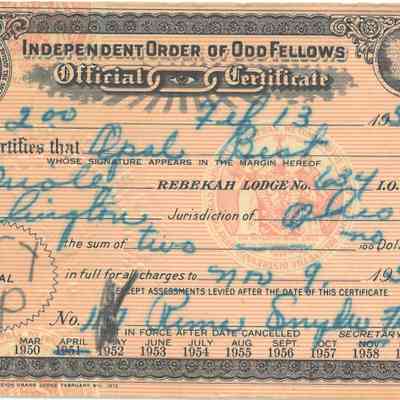 INDEPENDENT ORDER OF ODD FELLOWS
Official Certificate
2 00 Feb 13 195
ertifies that Opal Best
WHOSE SIGNATURE APPEARS IN THE MARGIN HEREOF
REBEKAH LODGE No. 634 I.O.
lington Jurisdiction of Ohio
the sum of two no/100 Dolla
in full for all charges to Nov 9, 195
EXCEPT ASSESSMENTS LEVIED AFTER THE DATE OF THIS CERTIFICATE
No.
IN FORCE AFTER DATE CANCELLED SECRETARY
MAR APRIL MAY JUNE JULY AUG SEPT OCT NOV
1950 1951 1952 1953 1954 1955 1956 1957 1958 1
EIGN GRAND LODGE FEBRUARY